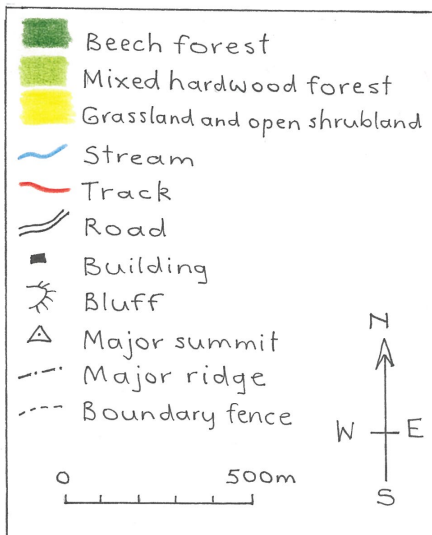 Beech forest
Mixed hardwood forest
Grassland and open shrubland
Stream
Track
Road
Building
Bluff
Major summit
Major ridge
Boundary fence
N
W E
S
0 500m